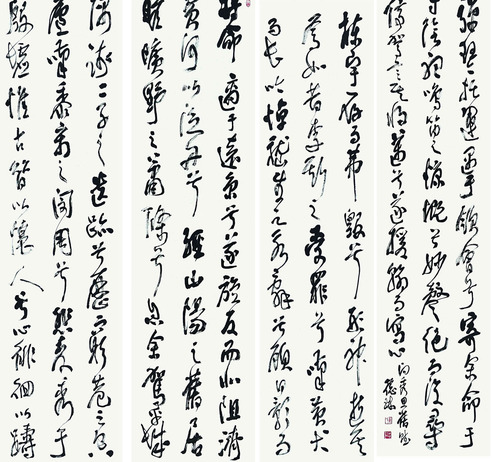 將命適于遠京兮遂旋反而北徂濟
黃河以泛舟兮經山陽之舊居
瞻曠野之蕭條兮息余駕乎城
隅踐二子之遺跡兮歷窮巷之空
廬嘆黍離之閔周兮悲麥秀于
殷墟惟古昔以懷人兮心徘徊以躊
棟宇存而弗毀兮形神逝其
焉如昔李斯之受罪兮嘆黃犬
而長吟悼嵇生之永辭兮顧日影而
彈琴托運遇于領會兮寄余命于
寸陰聽鳴笛之慷慨兮妙聲絕而復尋
停駕言其將邁兮遂援翰而寫心
向秀思舊賦